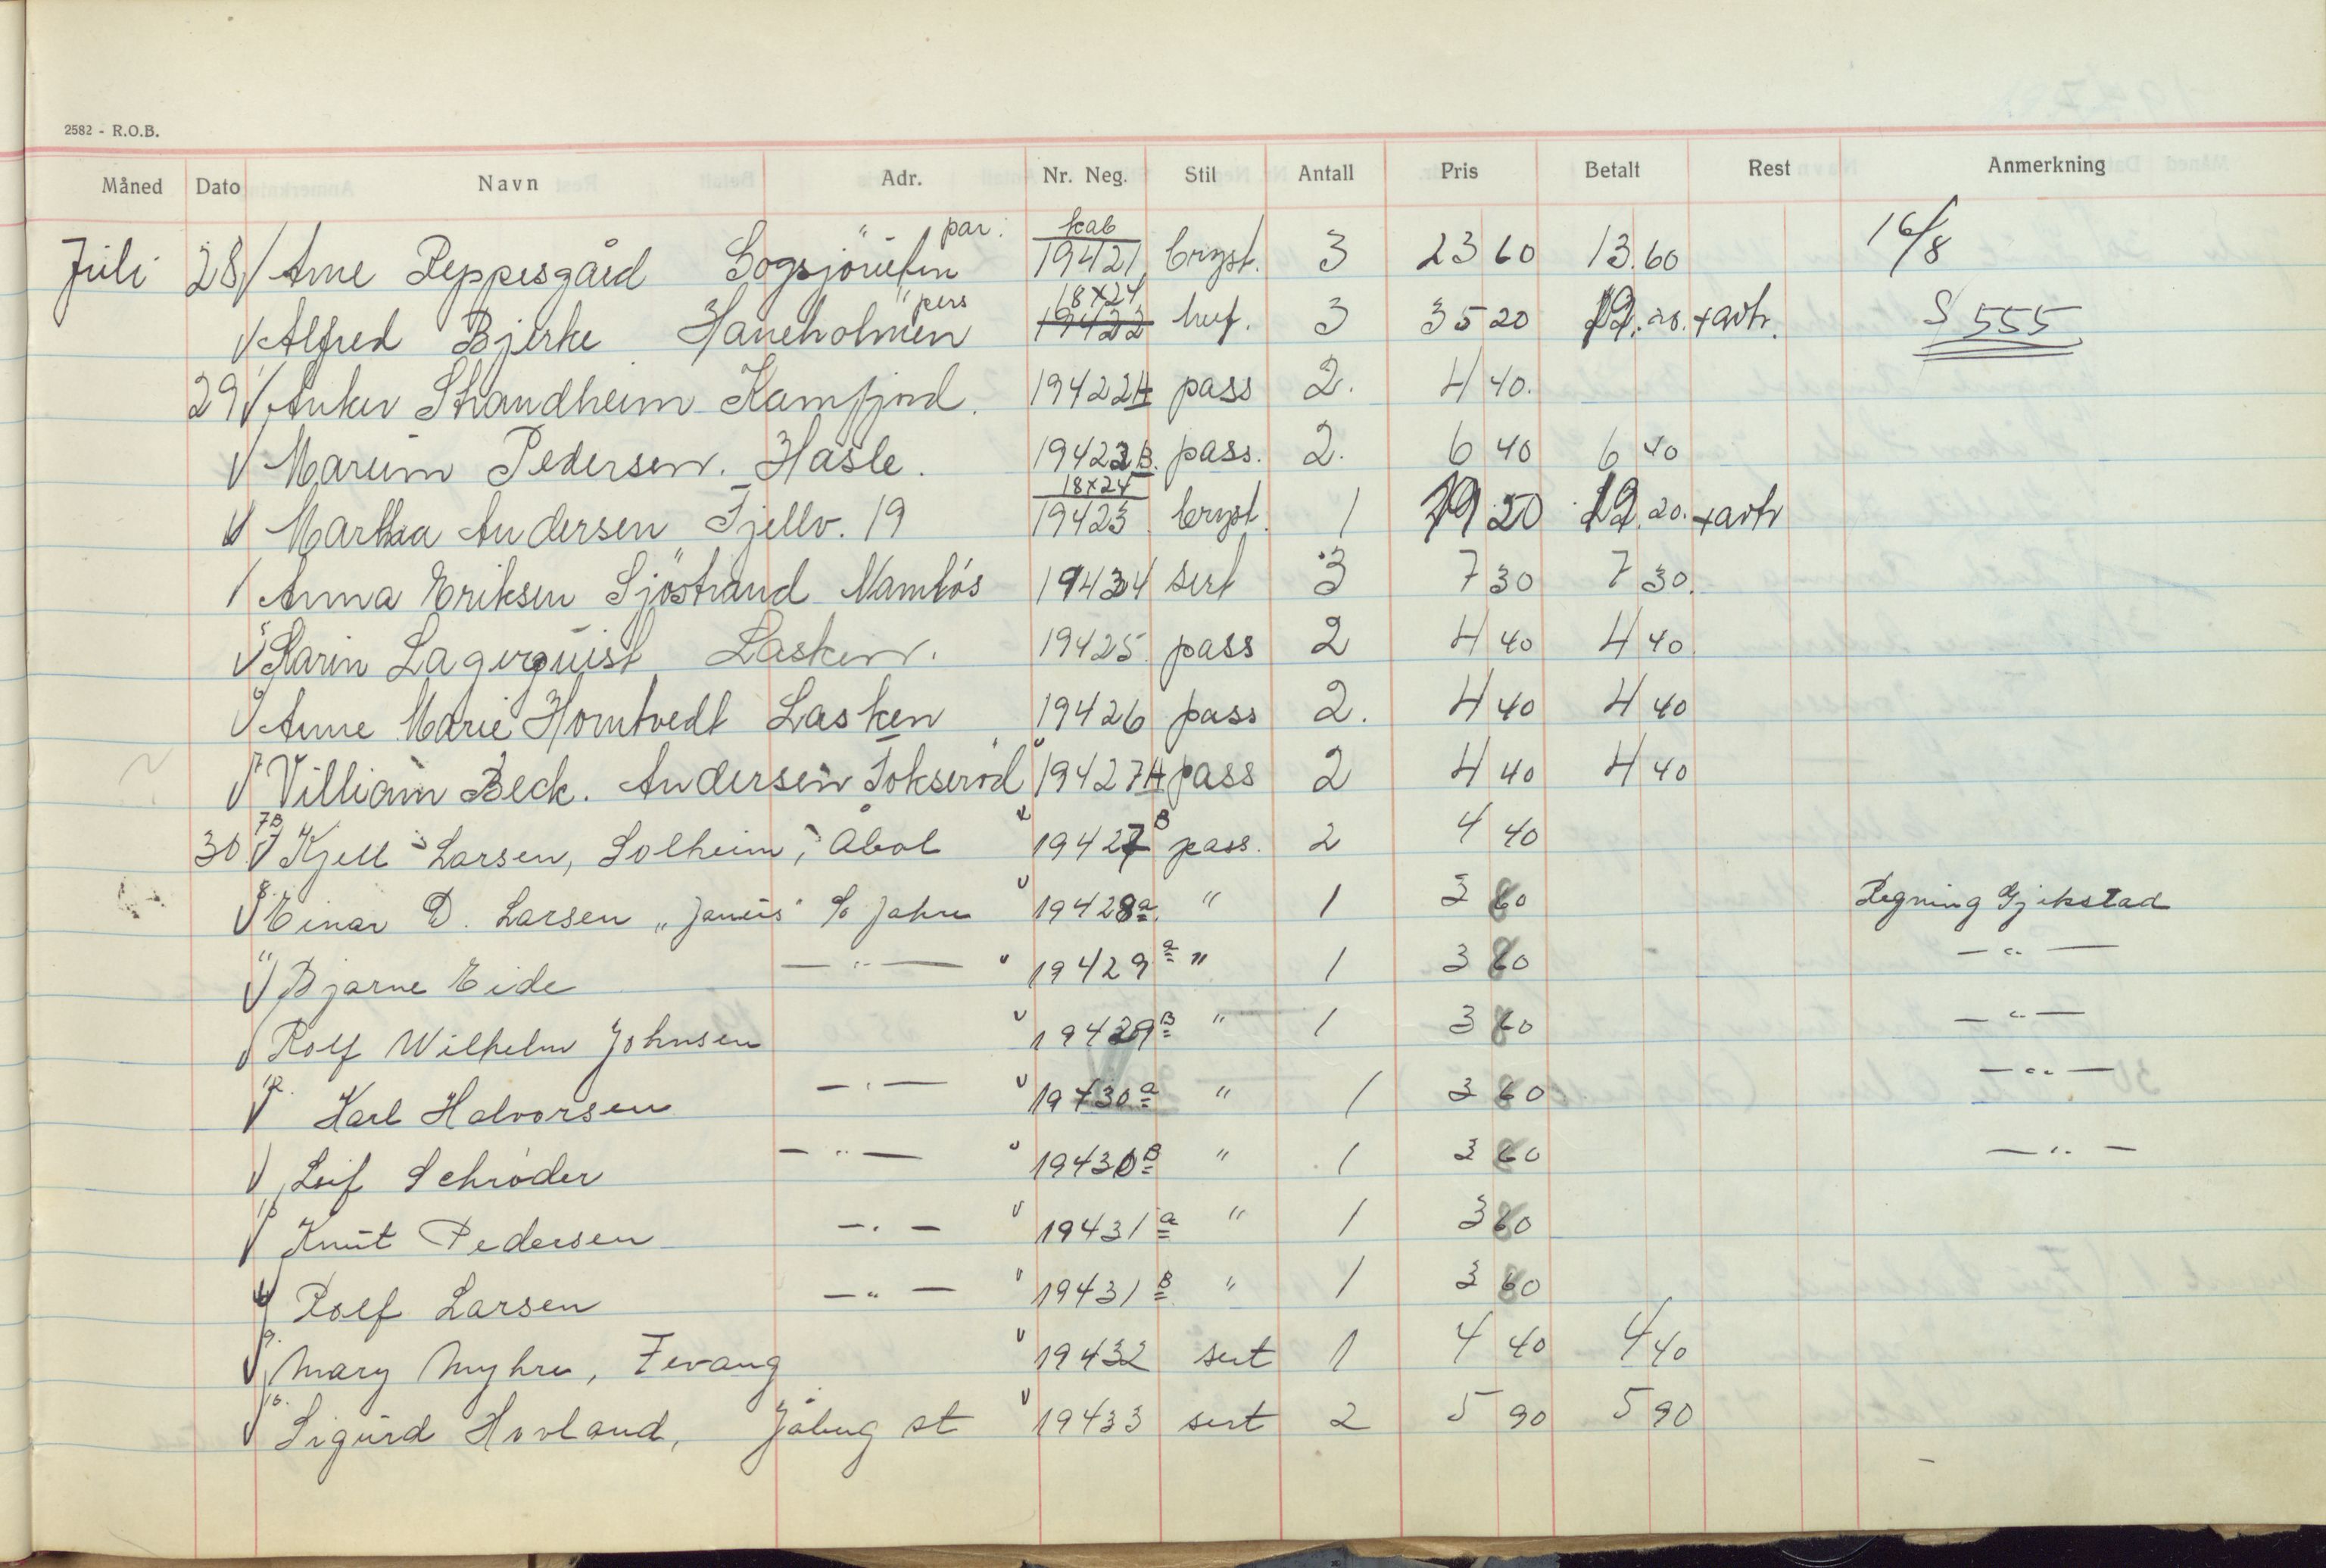 2582 - R.O.B.
Måned Dato Navn Adr. Nr. Neg. Stil Antall Pris Betalt Rest Anmerkning
par. kab 16/8
Juli 28 Arne Peppesgård 19421 bryst. 3 23 60 13.60
pers 18x24
Alfred Bjerke Haneholmen 19422 huf. 3 35 20 12.20. + avtr. S 555
29 Anker Strandheim Kamfjord. 19422A pass 2. 4 40.
Marum Pedersen. Hasle. 19422B. pass. 2. 6 40 6 40
18x24
Martha Andersen Fjellv. 19 19423 bryst. 1 19 20 12.20. + avtr
Anna Eriksen Sjöstrand Namlós 19424 sert 3 7 30 7 30.
Karin Lagerquist Lasken. 19425 pass 2 4 40 4 40
Anne Marie Homtvedt Lasken 19426 pass 2. 4 40 4 40
Villiam Beck. Andersen Tokseröd 19427A pass 2 4 40 4 40
7B
30 Kjell Larsen, Solheim, Åbol 19427B pass. 2 4 40
8 Einar D. Larsen "Janus" % Jahre 19428a " 1 3 80 Regning Gjekstad
" Bjarne Eide — " — 19429a " 1 3 80 — " —
Rolf Wilhelm Johnsen 19429B " 1 3 80 — " —
12. Karl Halvorsen — " — 19430a " 1 3 80 — " —
Leif Schröder — " — 19430B " 1 3 80 — " —
Knut Pedersen — " — 19431a " 1 3 80
Rolf Larsen — " — 19431B " 1 3 80
9. Mary Myhre, Fevang 19432 sert 1 4 40 4 40
Sigurd Hovland, Jåberg st 19433 sert 2 5 90 5 90